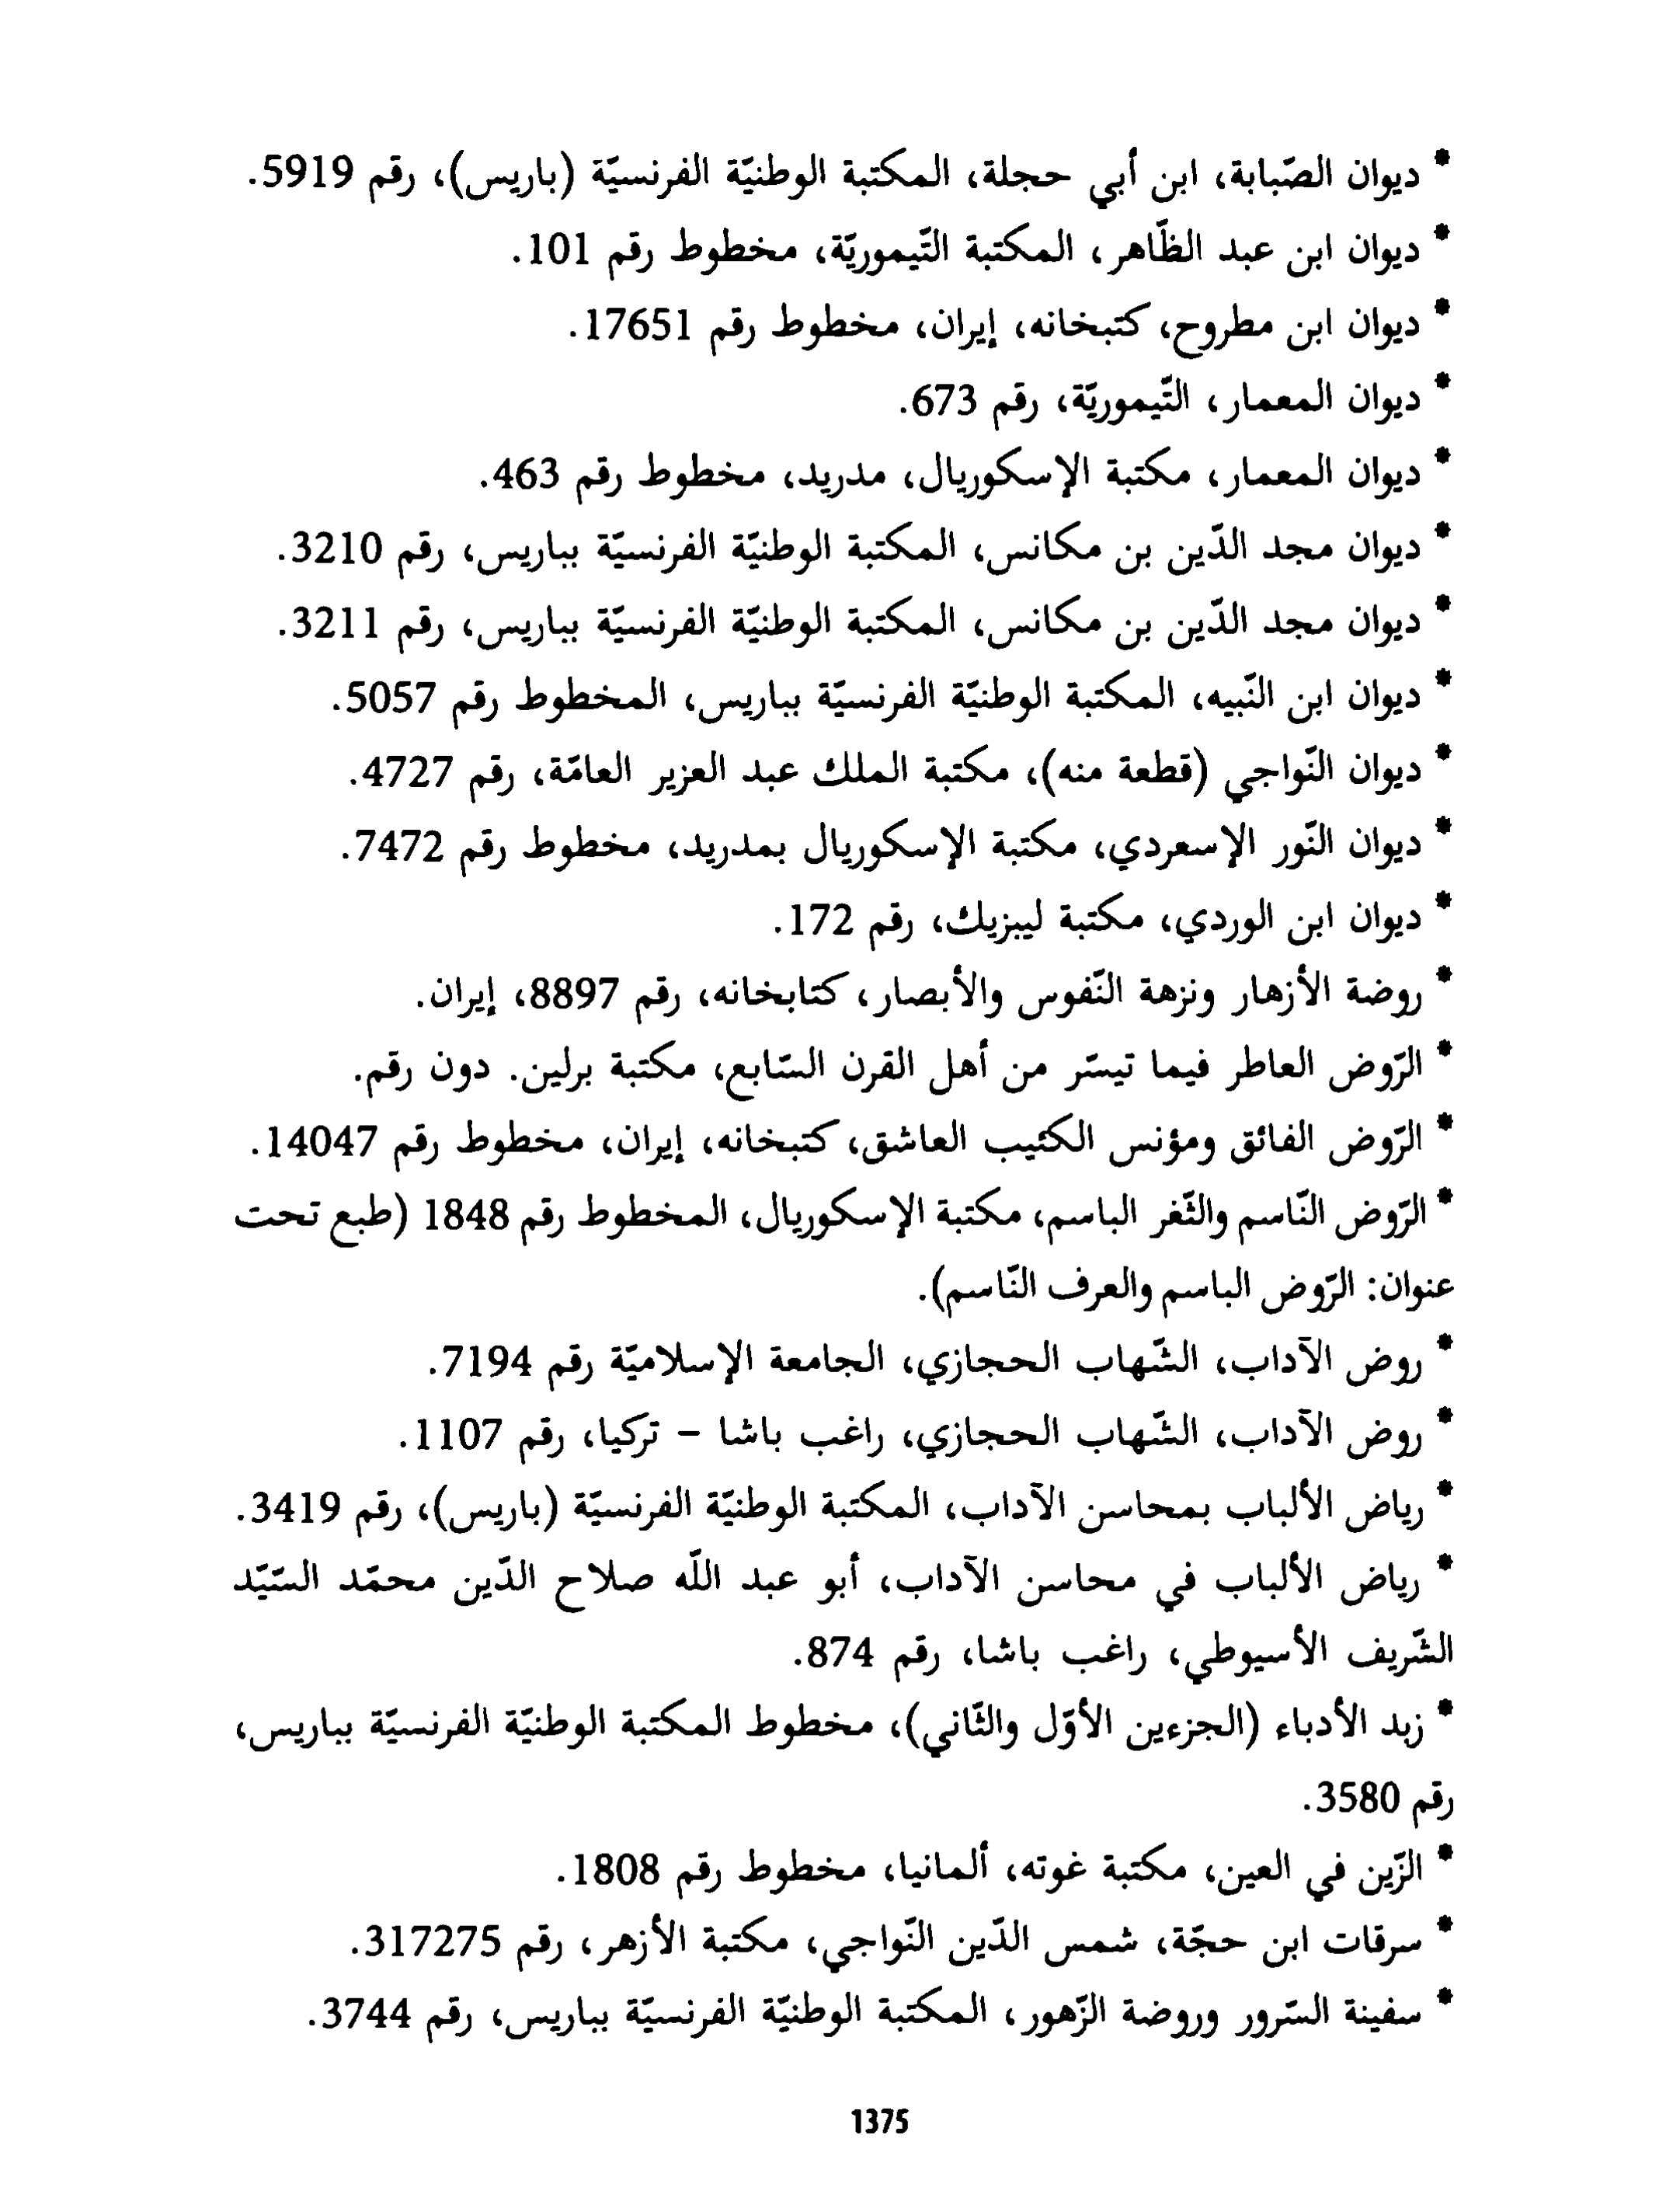 * ديوان الصّبابة، ابن أبي حجلة، المكتبة الوطنيّة الفرنسيّة (باريس)، رقم 5919.
* ديوان ابن عبد الظّاهر، المكتبة التّيموريّة، مخطوط رقم 101.
* ديوان ابن مطروح، كتبخانه، إيران، مخطوط رقم 17651.
* ديوان المعمار، التّيموريّة، رقم 673.
* ديوان المعمار، مكتبة الإسكوريال، مدريد، مخطوط رقم 463.
* ديوان مجد الدّين بن مكانس، المكتبة الوطنيّة الفرنسيّة بباريس، رقم 3210.
* ديوان مجد الدّين بن مكانس، المكتبة الوطنيّة الفرنسيّة بباريس، رقم 3211.
* ديوان ابن النّبيه، المكتبة الوطنيّة الفرنسيّة بباريس، المخطوط رقم 5057.
* ديوان النّواجي (قطعة منه)، مكتبة الملك عبد العزير العامّة، رقم 4727.
* ديوان النّور الإسعردي، مكتبة الإسكوريال بمدريد، مخطوط رقم 7472.
* ديوان ابن الوردي، مكتبة ليبزيك، رقم 172.
* روضة الأزهار ونزهة النّفوس والأبصار، كتابخانه، رقم 8897، إيران.
* الرّوض العاطر فيما تيسّر من أهل القرن السّابع، مكتبة برلين. دون رقم.
* الرّوض الفائق ومؤنس الكئيب العاشق، كتبخانه، إيران، مخطوط رقم 14047.
* الرّوض النّاسم والثّغر الباسم، مكتبة الإسكوريال، المخطوط رقم 1848 (طبع تحت
عنوان: الرّوض الباسم والعرف النّاسم).
* روض الآداب، الشّهاب الحجازي، الجامعة الإسلاميّة رقم 7194.
* روض الآداب، الشّهاب الحجازي، راغب باشا - تركيا، رقم 1107.
* رياض الألباب بمحاسن الآداب، المكتبة الوطنيّة الفرنسيّة (باريس)، رقم 3419.
* رياض الألباب في محاسن الآداب، أبو عبد اللّه صلاح الدّين محمّد السّيّد
الشّريف الأسيوطي، راغب باشا، رقم 874.
* زبد الأدباء (الجزءين الأوّل والثّاني)، مخطوط المكتبة الوطنيّة الفرنسيّة بباريس،
رقم 3580.
* الزّين في العين، مكتبة غوته، ألمانيا، مخطوط رقم 1808.
* سرقات ابن حجّة، شمس الدّين النّواجي، مكتبة الأزهر، رقم 317275.
* سفينة السّرور وروضة الزّهور، المكتبة الوطنيّة الفرنسيّة بباريس، رقم 3744.
1375